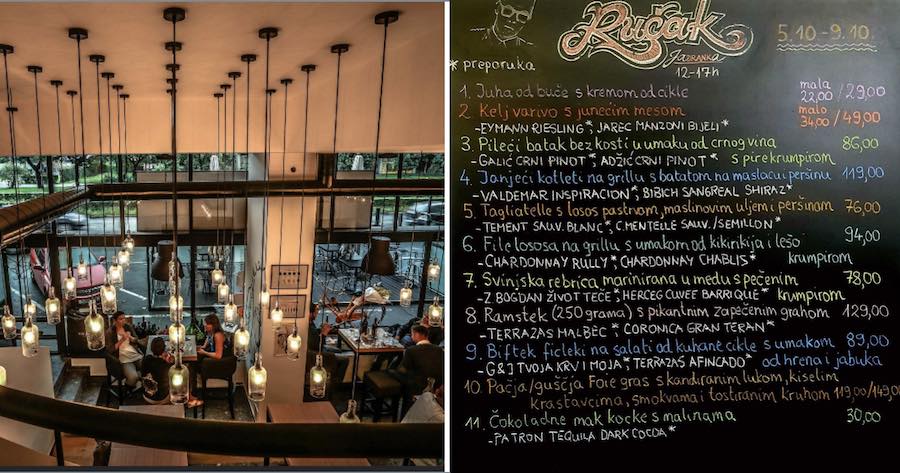 Ručak
Jazbranka
12-17h
5.10-9.10.
* preporuka
1. Juha od buče s kremom od cikle mala 22,00 / 29,00
2. Kelj varivo s junećim mesom malo 34,00 / 49,00
- EYMANN RIESLING*, JAREC MANZONI BIJELI*
3. Pileći batak bez kosti u umaku od crnog vina 86,00
- GALIĆ CRNI PINOT*, ADŽIĆ CRNI PINOT* s pire krumpirom
4. Janjeći kotleti na grillu s batatom na maslacu i peršinu 119,00
- VALDEMAR INSPIRACION*, BIBICH SANGREAL SHIRAZ*
5. Tagliatelle s losos pastrvom, maslinovim uljem i peršinom 76,00
- TEMENT SAUV. BLANC*, C. MENTELLE SAUV./SEMILLON*
6. File lososa na grillu s umakom od kikirikija i lešo 94,00
- CHARDONNAY RULLY*, CHARDONNAY CHABLIS* krumpirom
7. Svinjska rebrica marinirana u medu s pečenim 78,00
- Z. BOGDAN ŽIVOT TEČE*, HERCEG CUVEE BARRIQUE* krumpirom
8. Ramstek (250 grama) s pikantnim zapečenim grahom 129,00
- TERRAZAS MALBEC*, CORONICA GRAN TERAN*
9. Biftek ficleki na salati od kuhane cikle s umakom 89,00
- G&J TVOJA KRV I MOJA*, TERRAZAS AFINCADO* od hrena i jabuka
10. Pačja/guščja Foie gras s kandiranim lukom, kiselim
krastavcima, smokvama i tostiranim kruhom 119,00/149,00
11. Čokoladne mak kocke s malinama 30,00
- PATRON TEQUILA DARK COCOA*